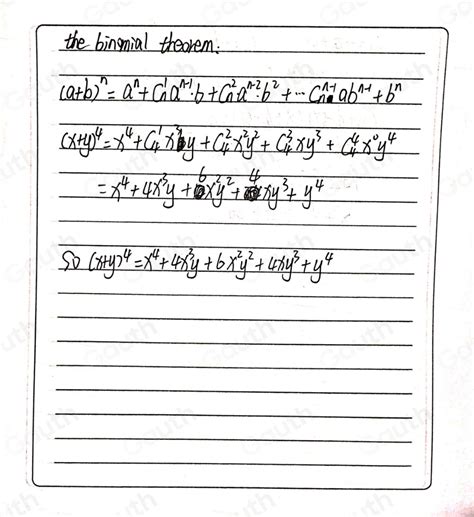 the binomial theorem:
(a+b)ⁿ = aⁿ + Cₙ¹aⁿ⁻¹·b + Cₙ²aⁿ⁻²·b² + ··· Cₙⁿ⁻¹abⁿ⁻¹ + bⁿ
(x+y)⁴ = x⁴ + C₄¹x³y + C₄²x²y² + C₄³xy³ + C₄⁴x⁰y⁴
= x⁴ + 4x³y + 6x²y² + 4xy³ + y⁴
So (x+y)⁴ = x⁴ + 4x³y + 6x²y² + 4xy³ + y⁴